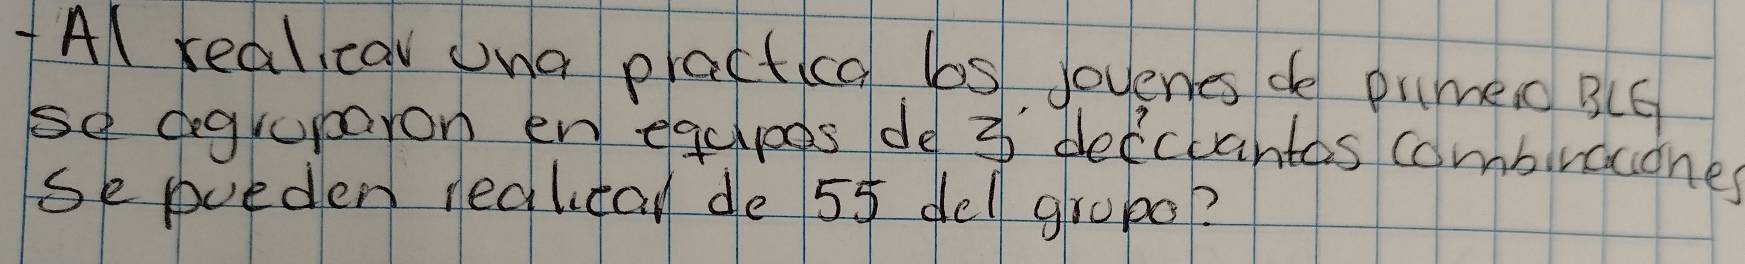 -Al realizar una practica los jovenes de primero BLG
se agruparon en equipos de 3 ¿decuantas combinaciones
se pueden realizar de 55 del grupo?